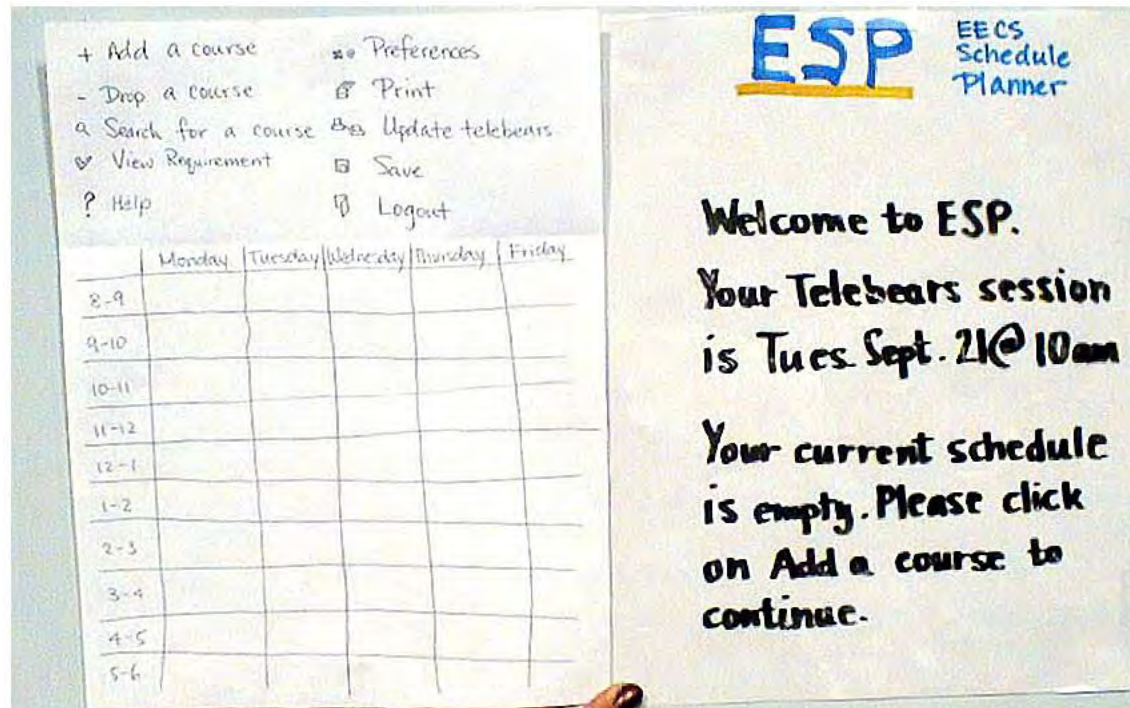 + Add a course
- Drop a course
Search for a course
View Requirement
? Help
Preferences
Print
Update telebears
Save
Logout
Monday Tuesday Wednesday Thursday Friday
8-9
9-10
10-11
11-12
12-1
1-2
2-3
3-4
4-5
5-6
ESP
EECS
Schedule
Planner
Welcome to ESP.
Your Telebears session
is Tues. Sept. 21@10am
Your current schedule
is empty. Please click
on Add a course to
continue.